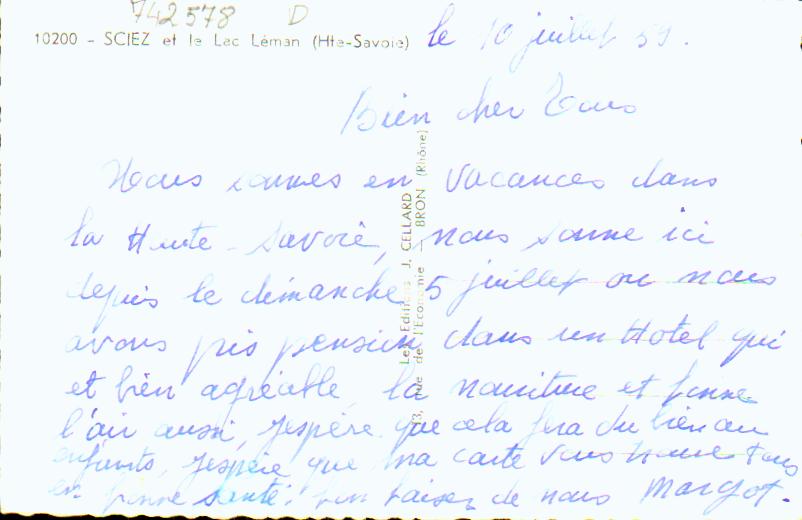 742578 D
10200 - SCIEZ et le Lac Léman (Hte-Savoie)
le 10 juillet 59.
Bien cher Tous
Nous sommes en vacances dans
la Haute-Savoie, nous somme ici
depuis le dimanche 5 juillet ou nous
avons pris pension dans un Hotel qui
et bien agréable, la nouriture et bonne
l'air aussi, j'espère que cela fera du bien au
enfants, j'espère que ma carte vous tous
en bonne santé. Bon baiser de nous Margot.
Les Editions J. CELLARD
de l'Economie - BRON (Rhône)